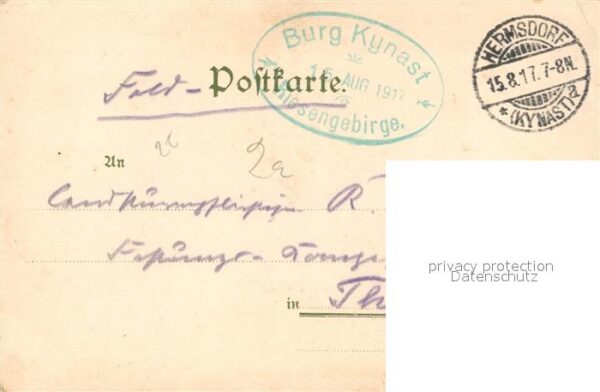 Burg Kynast
15. AUG 1917
Riesengebirge.
HERMSDORF
15.8.17.7-8N.
* (KYNAST) a
Feld - Postkarte.
An
2a
R.
Festungs-
in Th
privacy protection
Datenschutz